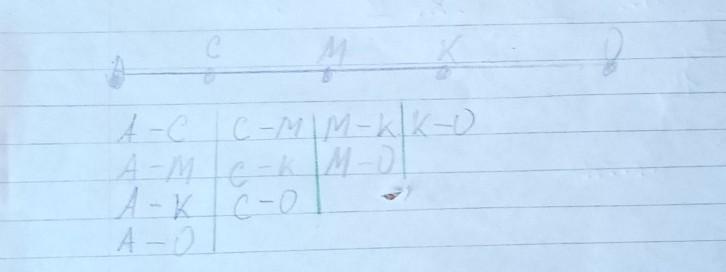 A C M K O
A-C C-M M-K K-O
A-M C-K M-O
A-K C-O
A-O